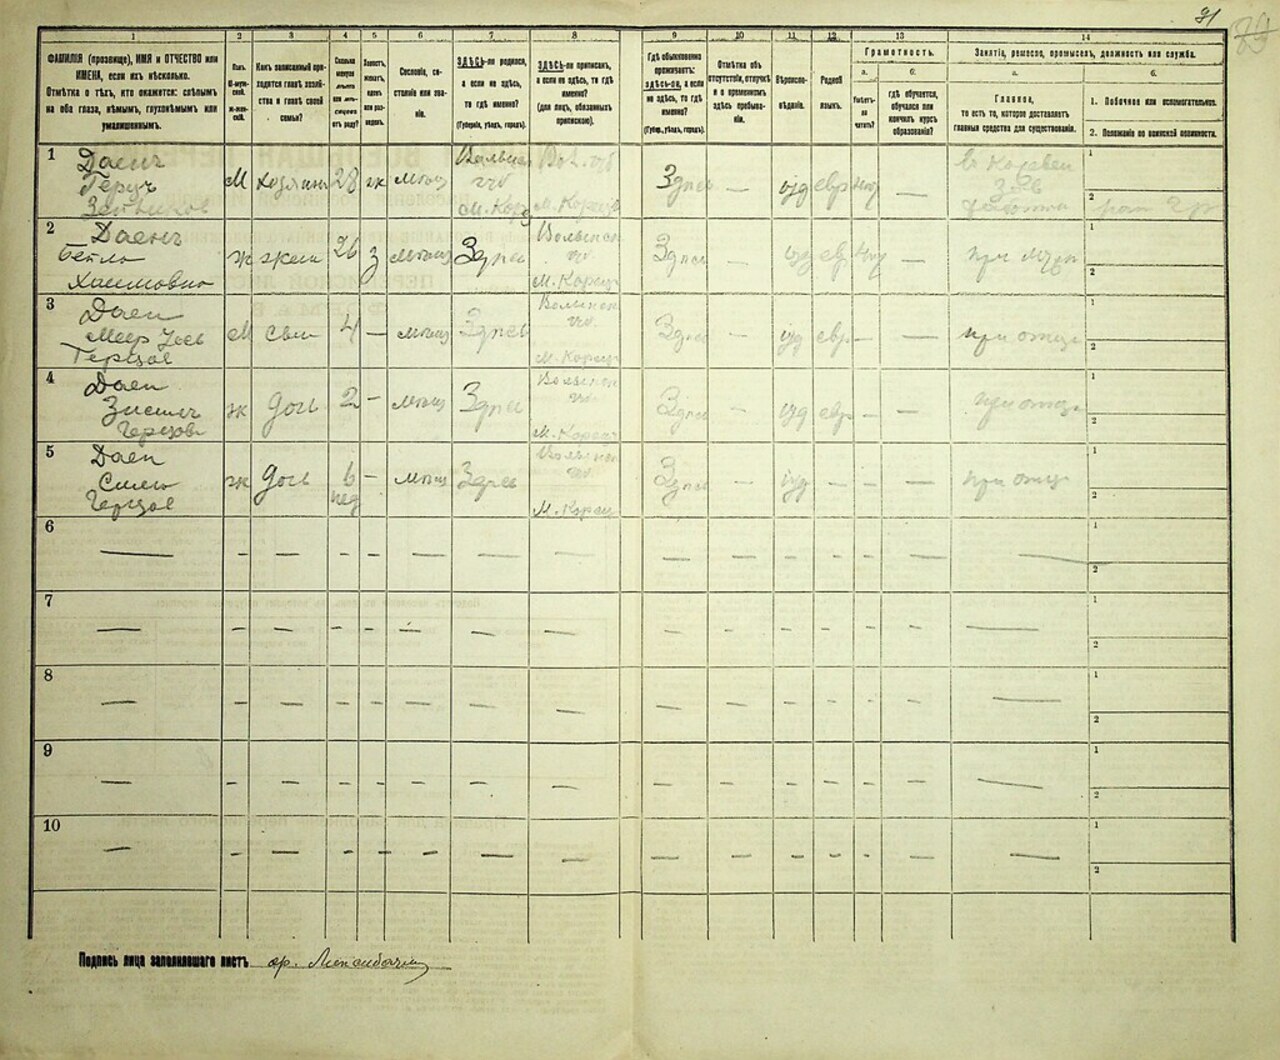 91
1
2
3
4
5
6
7
8
9
10
11
12
13
14
ФАМИЛІЯ (прозвище), ИМЯ и ОТЧЕСТВО или
ИМЕНА, если ихъ нѣсколько.
Отмѣтка о тѣхъ, кто окажется: слѣпымъ
на оба глаза, нѣмымъ, глухонѣмымъ или
умалишеннымъ.
Полъ.
М-муж-
ской.
Ж-жен-
скій.
Какъ записанный при-
ходится главѣ хозяй-
ства и главѣ своей
семьи?
Сколько
минуло
лѣтъ
или мѣ-
сяцевъ
отъ роду?
Холостъ,
женатъ,
вдовъ
или раз-
веденъ.
Сословіе, со-
стояніе или зва-
ніе.
ЗДѢСЬ-ли родился,
а если не здѣсь,
то гдѣ именно?
(Губернія, уѣздъ, городъ).
ЗДѢСЬ-ли приписанъ,
а если не здѣсь, то гдѣ
именно?
(для лицъ, обязанныхъ
припискою).
Гдѣ обыкновенно
проживаетъ:
здѣсь-ли, а если
не здѣсь, то гдѣ
именно?
(Губер., уѣздъ, городъ).
Отмѣтка объ
отсутствіи, отлучкѣ
и о временномъ
здѣсь пребыва-
ніи.
Вѣроиспо-
вѣданіе.
Родной
языкъ.
Грамотность.
а.
Умѣетъ-
ли
читать?
б.
гдѣ обучается,
обучался или
кончилъ курсъ
образованія?
Занятіе, ремесло, промыселъ, должность или служба.
а.
Главное,
то есть то, которое доставляетъ
главныя средства для существованія.
б.
1. Побочное или вспомогательное.
2. Положеніе по воинской повинности.
1
Даенъ
Герцъ
М
хозяинъ
28
ж
мѣщ
Волынс
губ
М. Корец
Вол. губ
М. Корецъ
Здесь
—
иуд
евр
—
1
2
2
Даенъ
Бейла
Хаимовна
ж
жена
26
З
мѣщ
Здесь
Волынск
губ
М. Корец
Здесь
—
иуд
ев
—
при мужѣ
1
2
3
Даен
Меер
Герцов
М
сын
4
—
мѣщ
Здесь
Волынск
губ.
М. Корец
Здесь
—
иуд
евр
—
—
при отцѣ
1
2
4
Даен
Герцов
ж
дочь
2
—
мѣщ
Здесь
Волынск
губ
М. Корец
Здесь
—
иуд
евр
—
—
при отцѣ
1
2
5
Даен
Герцов
ж
дочь
6
нед
—
мѣщ
Здесь
Волынск
губ
М. Корец
Здесь
—
иуд
—
—
—
при отцѣ
1
2
6
1
2
7
1
2
8
1
2
9
1
2
10
1
2
Подпись лица заполнившаго листъ